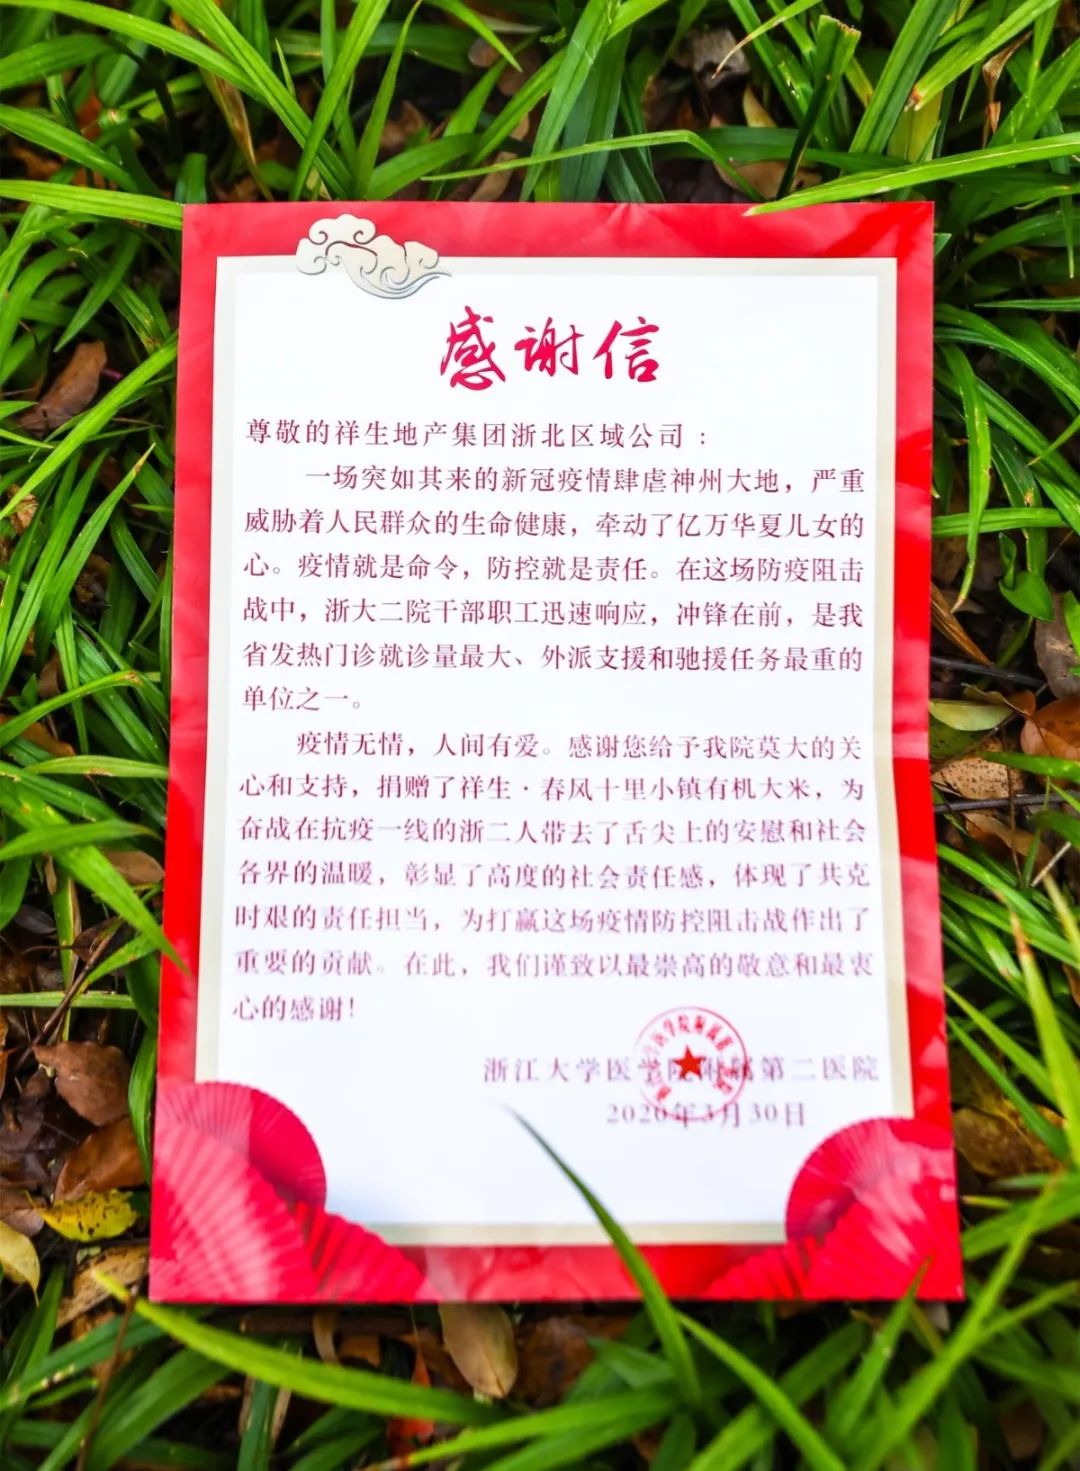 感谢信
尊敬的祥生地产集团浙北区域公司：
一场突如其来的新冠疫情肆虐神州大地，严重
威胁着人民群众的生命健康，牵动了亿万华夏儿女的
心。疫情就是命令，防控就是责任。在这场防疫阻击
战中，浙大二院干部职工迅速响应，冲锋在前，是我
省发热门诊就诊量最大、外派支援和驰援任务最重的
单位之一。
疫情无情，人间有爱。感谢您给予我院莫大的关
心和支持，捐赠了祥生·春风十里小镇有机大米，为
奋战在抗疫一线的浙二人带去了舌尖上的安慰和社会
各界的温暖，彰显了高度的社会责任感，体现了共克
时艰的责任担当，为打赢这场疫情防控阻击战作出了
重要的贡献。在此，我们谨致以最崇高的敬意和最衷
心的感谢！
浙江大学医学院附属第二医院
2020年3月30日